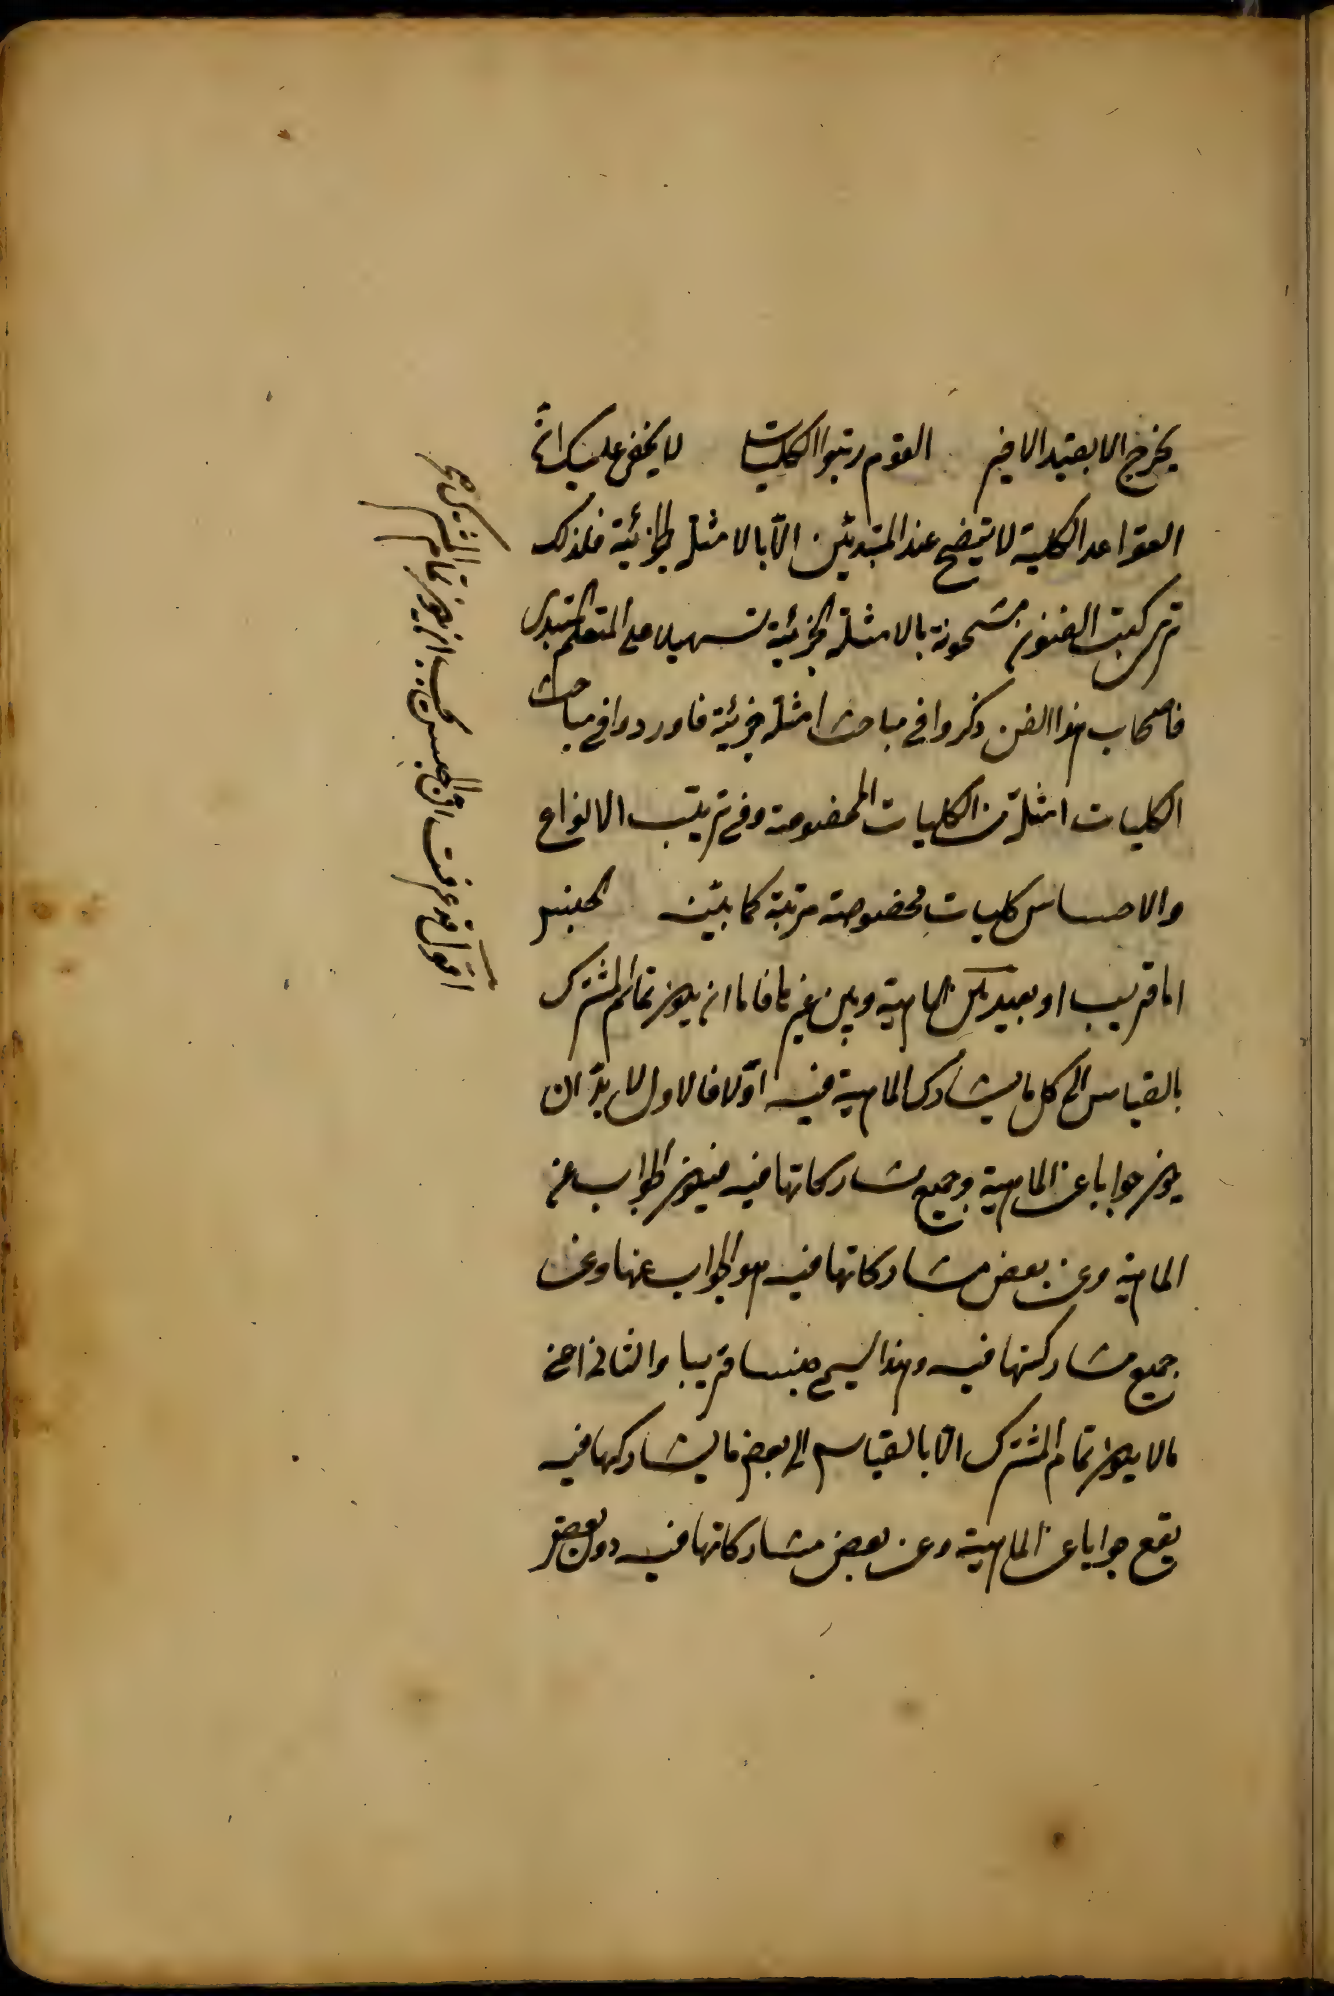 يخرج الا بقيد الاخير القوم رتبوا الكليات لا يخفى عليك ان
القواعد الكلية لا تتضح عند المبتدئين الّا بالامثلة الجزئية فلذلك
ترى كتب الفنون مشحونة بالامثلة الجزئية تسهيلا على المتعلم المبتدى
فاصحاب هذا الفن ذكروا فى مباحث امثلة جزئية فاوردوا فى مباحث
الكليات امثلة من الكليات المخصوصة وفى ترتيب الانواع
والاجناس كليات مخصوصة مرتبة كما بيّن الجنس
اما قريب او بعيد بين الماهية وبين غيرها فاما ان يكون تمام المشترك
بالقياس الى كل ما يشارك الماهية فيه اوّلا فالاول لا بدّ ان
يكون جوابا عن الماهية وجميع مشاركاتها فيه فيكون الجواب عن
الماهية وعن بعض مشاركاتها فيه هو الجواب عنها وعن
جميع مشاركتها فيه وهذا يسمى جنسا قريبا والثانى اعنى
ما لا يكون تمام المشترك الّا بالقياس الى بعض ما يشاركها فيه
يقع جوابا عن الماهية وعن بعض مشاركاتها فيه دون بعض
اقول قد عرفت ان الجنس يجب ان يكون تمام المشترك